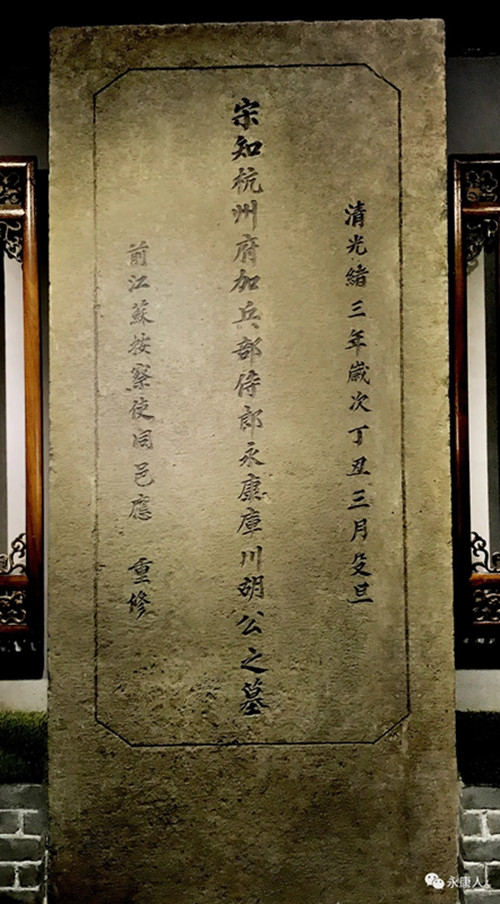 清光緒三年歲次丁丑三月旦
宋知杭州府加兵部侍郎永康庫川胡公之墓
前江蘇按察使同邑應 重修
永康人